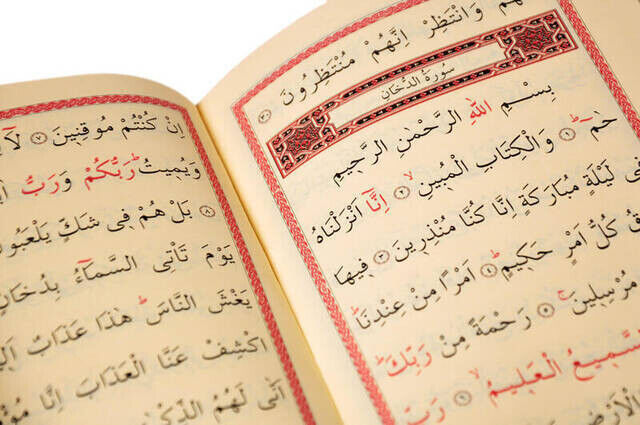 وَانْتَظِرْ اِنَّهُمْ مُنْتَظِرُونَ ٣٠
سُورَةُ الدُّخَانِ
بِسْمِ اللّٰهِ الرَّحْمٰنِ الرَّحِيمِ
حٰمٓ ١ وَالْكِتَابِ الْمُبِينِ ٢ اِنَّٓا اَنْزَلْنَاهُ
لَيْلَةٍ مُبَارَكَةٍ اِنَّا كُنَّا مُنْذِرِينَ ٣ فِيهَا
كُلُّ اَمْرٍ حَكِيمٍ ٤ اَمْرًا مِنْ عِنْدِنَا
مُرْسِلِينَ ٥ رَحْمَةً مِنْ رَبِّكَ
السَّمِيعُ الْعَلِيمُ ٦ رَبِّ
اِنْ كُنْتُمْ مُوقِنِينَ ٧ لَٓا
وَيُمِيتُ رَبُّكُمْ وَرَبُّ
٨ بَلْ هُمْ فِى شَكٍّ يَلْعَبُونَ
يَوْمَ تَأْتِى السَّمَٓاءُ بِدُخَانٍ
يَغْشَى النَّاسَ هٰذَا عَذَابٌ
اكْشِفْ عَنَّا الْعَذَابَ اِنَّا
اَنّٰى لَهُمُ الذِّكْرٰى